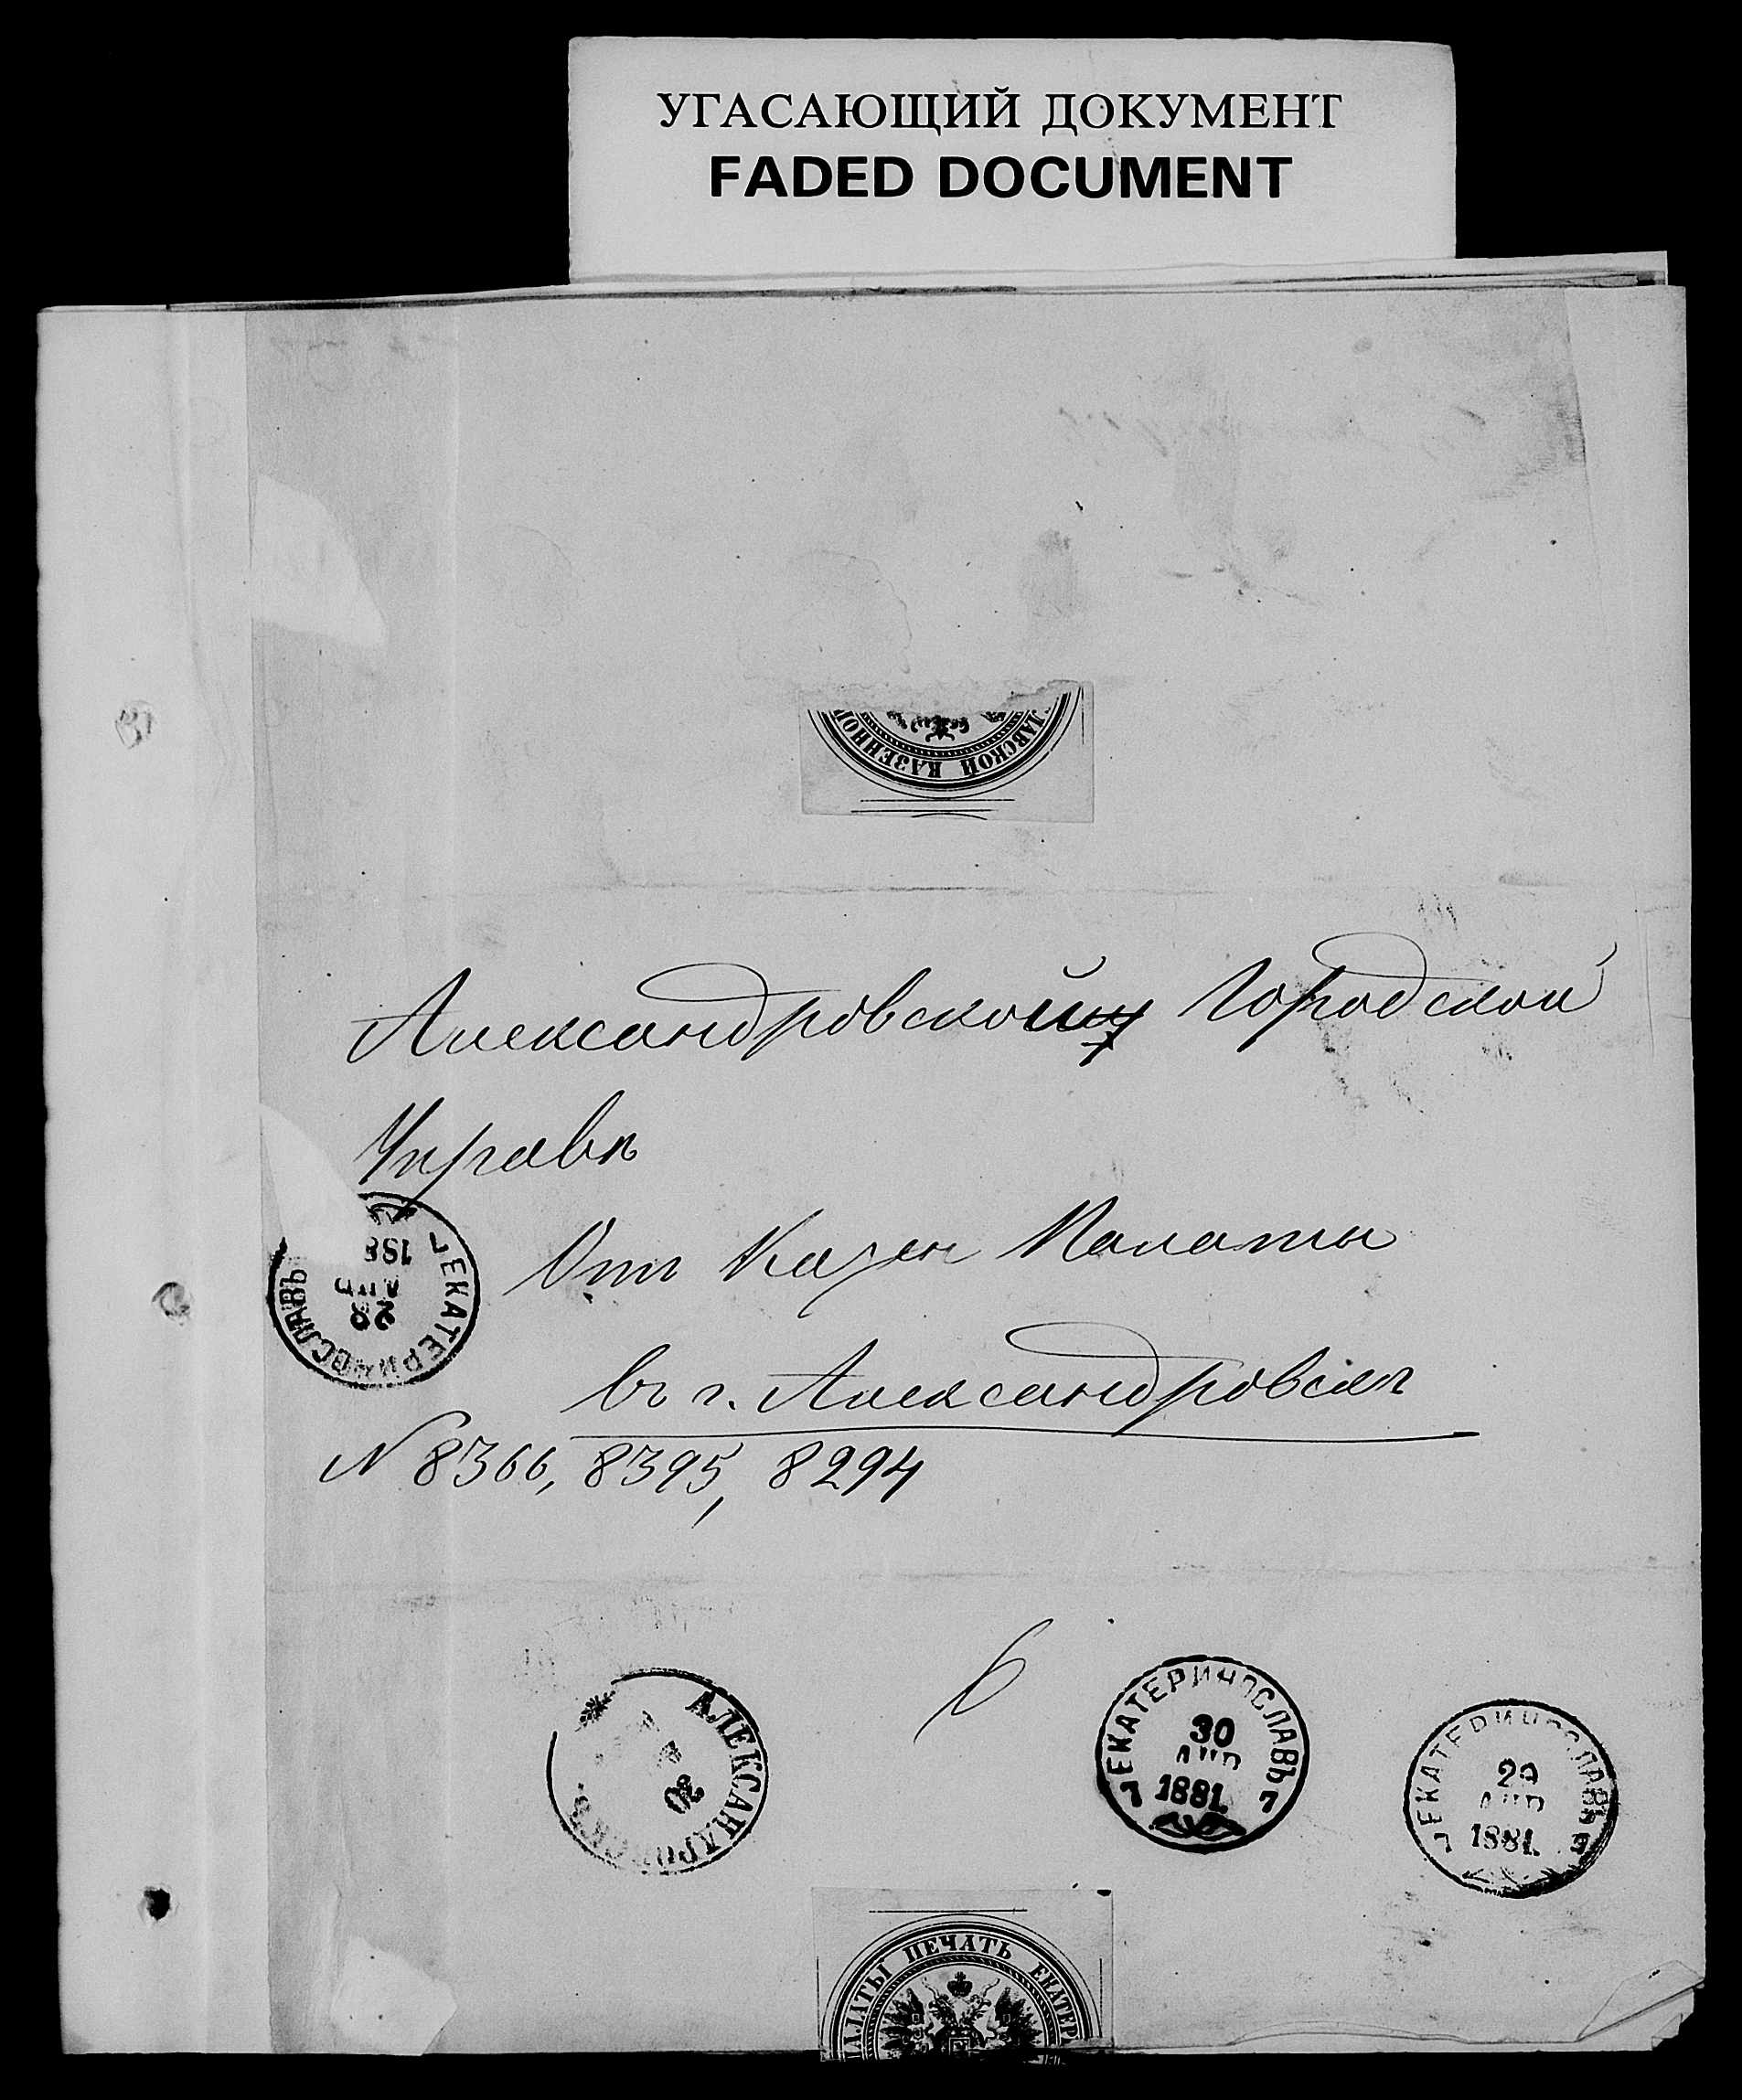 УГАСАЮЩИЙ ДОКУМЕНТ
FADED DOCUMENT
СЛАВСКОЙ КАЗЕННОЙ
Александровской Городской
Управѣ
Отъ Казен Палаты
въ г. Александровскъ
N 8366, 8395, 8294
ЕКАТЕРИ ВСЛАВЪ
188
АЛЕКСАНДРОВСКЪ
30
6
7 ЕКАТЕРИНОСЛАВЪ 7
30
АПР
1881.
ЕКАТЕРИНОСЛАВЪ
29
АПР
1881.
ПАЛАТЫ ПЕЧАТЬ ЕКАТЕР